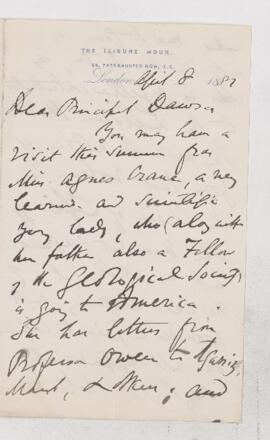 THE LEISURE HOUR,
56, PATERNOSTER ROW, E.C.
London April 8 1882
Dear Principal Dawson
You may have a
visit this summer from
Miss Agnes Crane, a very
learned and scientific
young lady, who (along with
her father also a Fellow
of the Geological Society
is going to America.
She has letters from
Professor Owen to Agassiz,
Marsh, & others; and